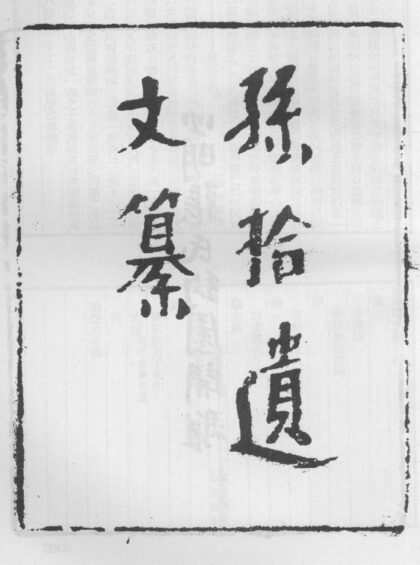 孫拾遺
文纂